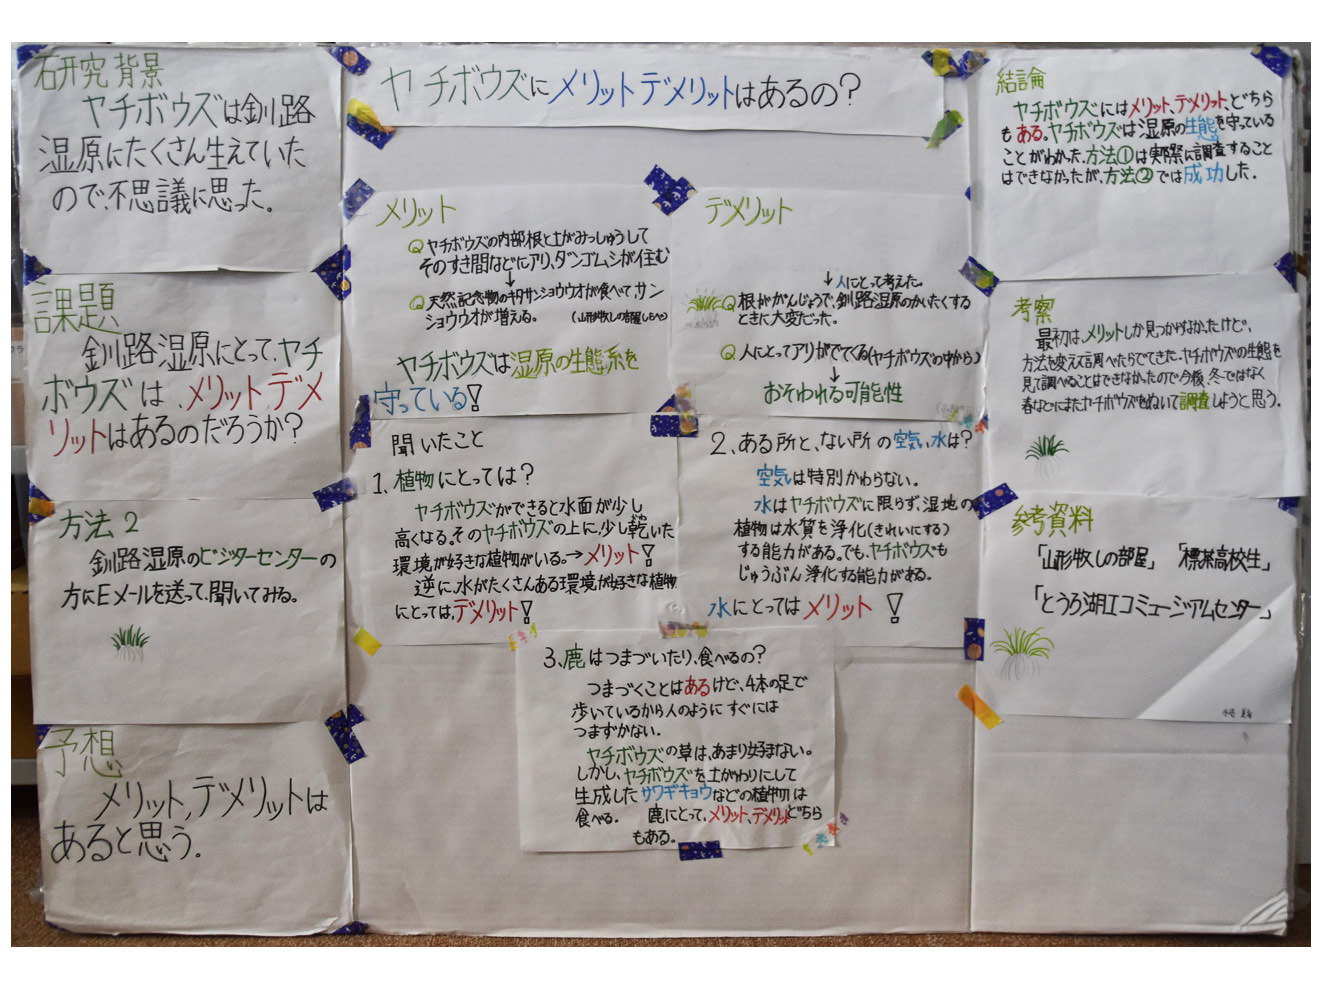 ヤチボウズにメリットデメリットはあるの?
研究背景
ヤチボウズは釧路
湿原にたくさん生えていた
ので、不思議に思った。
課題
釧路湿原にとって、ヤチ
ボウズは、メリットデメ
リットはあるのだろうか?
方法2
釧路湿原のビジターセンターの
方にEメールを送って、聞いてみる。
予想
メリット,デメリットは
あると思う。
メリット
ヤチボウズの内部根と土がみっしゅうして
そのすき間などにアリ、ダンゴムシが住む
↓
天然記念物のキタサンショウウオが食べて、サン
ショウウオが増える。
ヤチボウズは湿原の生態系を
守っている!
デメリット
↓人にとって考えた。
根ががんじょうで、釧路湿原のかいたくする
ときに大変だった。
人にとってアリがでてくる(ヤチボウズの中から)
↓
おそわれる可能性
聞いたこと
1、植物にとっては?
ヤチボウズができると水面が少し
高くなる。そのヤチボウズの上に、少し乾いた
環境が好きな植物がいる。→メリット!
逆に、水がたくさんある環境が好きな植物
にとっては,デメリット!
2、ある所と、ない所の空気、水は?
空気は特別かわらない。
水はヤチボウズに限らず、湿地の
植物は水質を浄化(きれいにする)
する能力がある。でも、ヤチボウズも
じゅうぶん浄化する能力がある。
水にとってはメリット!
3、鹿はつまづいたり、食べるの?
つまづくことはあるけど、4本の足で
歩いているから人のようにすぐには
つまずかない。
ヤチボウズの草は、あまり好まない。
しかし、ヤチボウズを土がわりにして
生成したサワギキョウなどの植物は
食べる。 鹿にとって、メリット、デメリットどちら
もある。
結論
ヤチボウズにはメリット、デメリット、どちら
もある。ヤチボウズは湿原の生態を守っている
ことがわかった。方法①は実際に調査すること
はできなかったが、方法②では成功した。
考察
最初は、メリットしか見つからなかったけど、
方法を変えて調べたらでてきた。ヤチボウズの生態を
見て調べることはできなかったので今後、冬ではなく
春などにまたヤチボウズをぬいて調査しようと思う。
参考資料
「山形牧しの部屋」 「標茶高校生」
「とうろ湖エコミュージアムセンター」